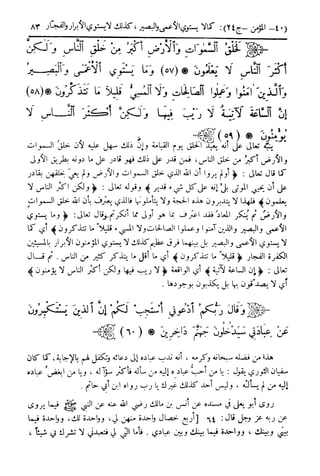 (٤٠- المؤمن - ج٢٤): كمالا يستوي الأعمى والبصير، كذلك لايستوي الأبرار والفجار ٨٣
لَخَلْقُ السَّمَاوَاتِ وَالْأَرْضِ أَكْبَرُ مِنْ خَلْقِ النَّاسِ وَلَٰكِنَّ
أَكْثَرَ النَّاسِ لَا يَعْلَمُونَ (٥٧) وَمَا يَسْتَوِي الْأَعْمَىٰ وَالْبَصِيرُ
وَالَّذِينَ آمَنُوا وَعَمِلُوا الصَّالِحَاتِ وَلَا الْمُسِيءُ قَلِيلًا مَّا تَتَذَكَّرُونَ (٥٨)
إِنَّ السَّاعَةَ لَآتِيَةٌ لَّا رَيْبَ فِيهَا وَلَٰكِنَّ أَكْثَرَ النَّاسِ لَا
يُؤْمِنُونَ (٥٩)
يقول تعالى منبهاً على أنه يعيد الخلائق يوم القيامة وإنَّ ذلك سهل عليه لأن خلق السموات
والأرض أكبر من خلق الناس، فمن قدر على ذلك فهو قادر على ما دونه بطريق الأولى
كما قال تعالى : ﴿ أولم يروا أن الله الذي خلق السموات والأرض ولم يعي بخلقهن بقادر
على أن يحيي الموتى بلى إنه على كل شيء قدير ﴾ وقوله تعالى : ﴿ ولكن أكثر الناس لا
يعلمون ﴾ فلهذا لا يتدبرون هذه الحجة ولا يتأملونها فالذي يعترف بأن الله خلق السموات
والأرض ثم يُنكر المعادَ فقد اعترف بما هو أولى مما أنكر ثم قال تعالى: ﴿ وما يستوي
الأعمى والبصير والذين آمنوا وعملوا الصالحات ولا المسيء قليلاً ما تتذكرون ﴾ أي كما
لا يستوي الأعمى والبصير بل بينهما فرق عظيم كذلك لا يستوي المؤمنون الأبرار بالمسيئين
الكفرة الفجار ﴿ قليلاً ما تتذكرون ﴾ أي ما أقل ما يتذكر كثير من الناس . ثم قال
تعالى : ﴿ إن الساعة لآتية ﴾ أي الواقعة ﴿ لا ريب فيها ولكن أكثر الناس لا يؤمنون ﴾
أي لا يصدقون بها بل يكذبون بوجودها .
وَقَالَ رَبُّكُمُ ادْعُونِي أَسْتَجِبْ لَكُمْ إِنَّ الَّذِينَ يَسْتَكْبِرُونَ
عَنْ عِبَادَتِي سَيَدْخُلُونَ جَهَنَّمَ دَاخِرِينَ (٦٠)
هذا من فضله سبحانه وكرمه ، أنه ندب عباده إلى دعائه وتكفل لهم بالإجابة، كما كان
سفيان الثوري يقول : يا من أحب عباده إليه من سأله فأكثر سؤله ، ويا من أبغض عباده
إليه من لم يسأله ، وليس أحد كذلك غيرك يا رب رواه ابن أبي حاتم .
روى أبو يعلى في مسنده عن أنس بن مالك رضي الله عنه عن النبي ﷺ فيما يروي
عن ربه عز وجل قال: ٦٤ [ أربع خصال واحدة منهن لي، وواحدة لك، وواحدة فيما
بيني وبينك ، وواحدة فيما بينك وبين عبادي . فأما التي لي فتعبدني لا تشرك بي شيئاً ،